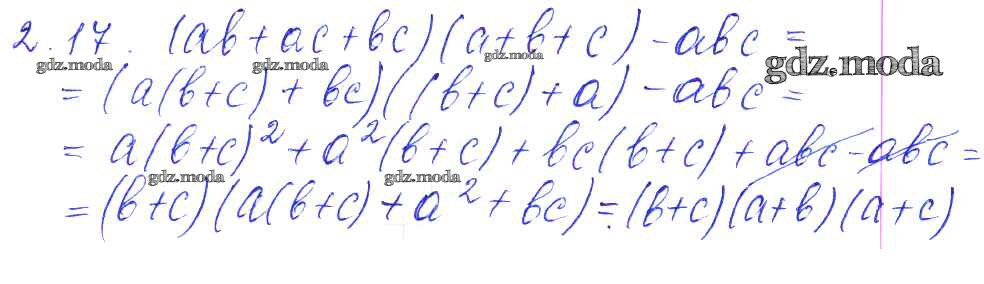 2.17. (ab + ac + bc)(a + b + c) - abc =
gdz.moda gdz.moda gdz.moda gdz.moda
= (a(b+c) + bc)((b+c) + a) - abc =
= a(b+c)² + a²(b+c) + bc(b+c) + abc - abc =
gdz.moda gdz.moda
= (b+c)(a(b+c) + a² + bc) = (b+c)(a+b)(a+c)